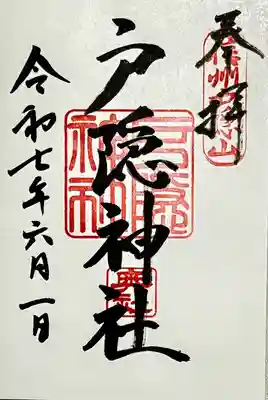 奉拝
信州戸隠山
戸隠神社
戸隠神社
奥社
令和七年六月一日